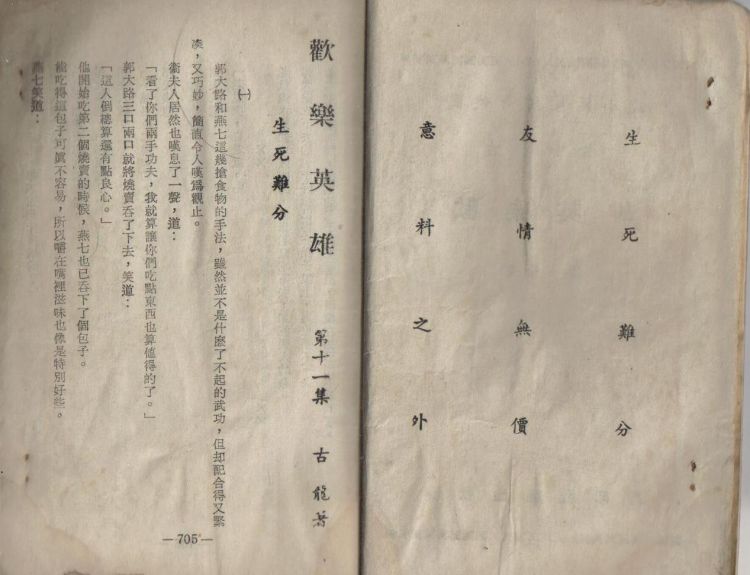 生死難分
友情無價
意料之外
歡樂英雄 第十一集 古龍著
㈠ 生死難分
郭大路和燕七這幾搶食物的手法，雖然並不是什麼了不起的武功，但却配合得又緊
凑，又巧妙，簡直令人嘆爲觀止。
衞夫人居然也嘆息了一聲，道：
「看了你們兩手功夫，我就算讓你們吃點東西也算值得的了。」
郭大路三口兩口就將燒賣吞了下去，笑道：
「這人倒總算還有點良心。」
他開始吃第二個燒賣的時候，燕七也已吞下了個包子。
能吃得這包子可眞不容易，所以嚼在嘴裡滋味也像是特別好些。
燕七笑道：
—705—